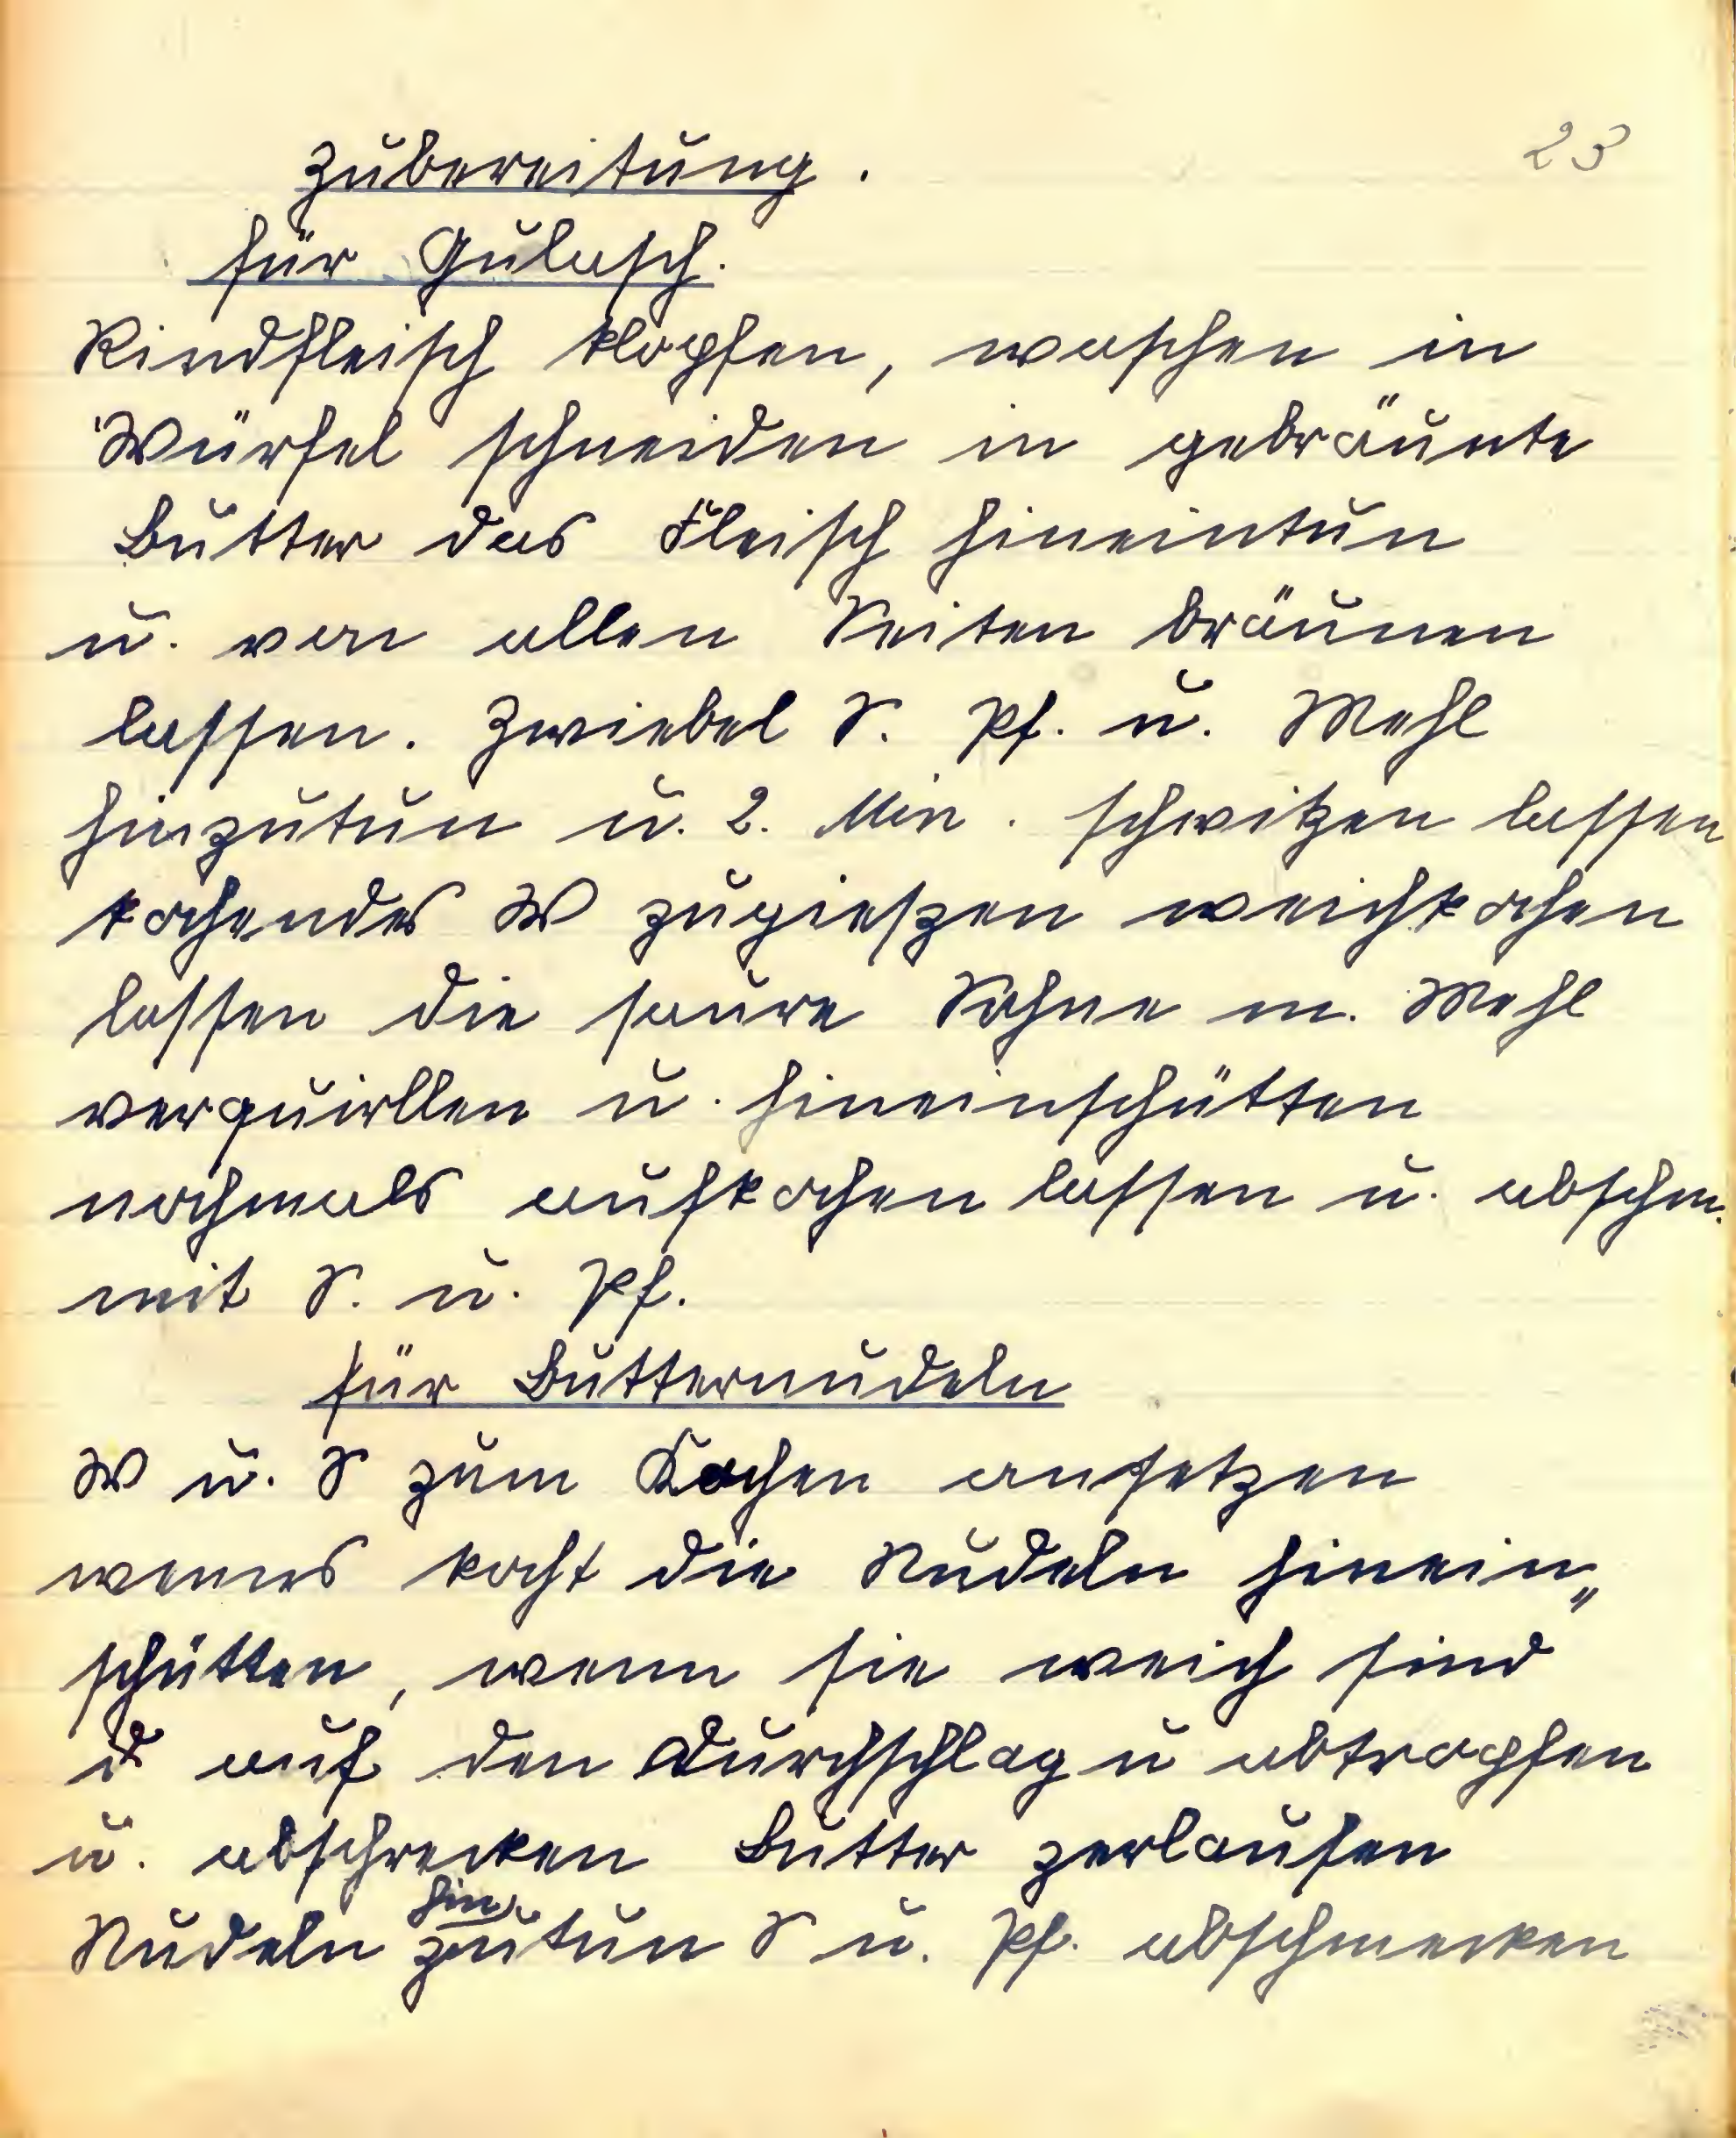 23
Zubereitung.
für Gulasch.
Rindfleisch klopfen, waschen in
Würfel schneiden in gebräunte
Butter das Fleisch hineintun
u. von allen Seiten bräunen
lassen. Zwiebel S. Pf. u. Mehl
hinzutun u. 2. Min. schwitzen lassen
kochendes W zugießen weichkochen
lassen die saure Sahne m. Mehl
verquirllen u. hineinschütten
nochmals aufkochen lassen u. abschm.
mit S. u. Pf.
für Butternudeln
W u. S zum Kochen ansetzen
wenns kocht die Nudeln hinein„
schütten, wenn sie weich sind
auf den Durchschlag u abtropfen
u. abschrecken Butter zerlaufen
Nudeln hinzutun S u. Pf. abschmecken